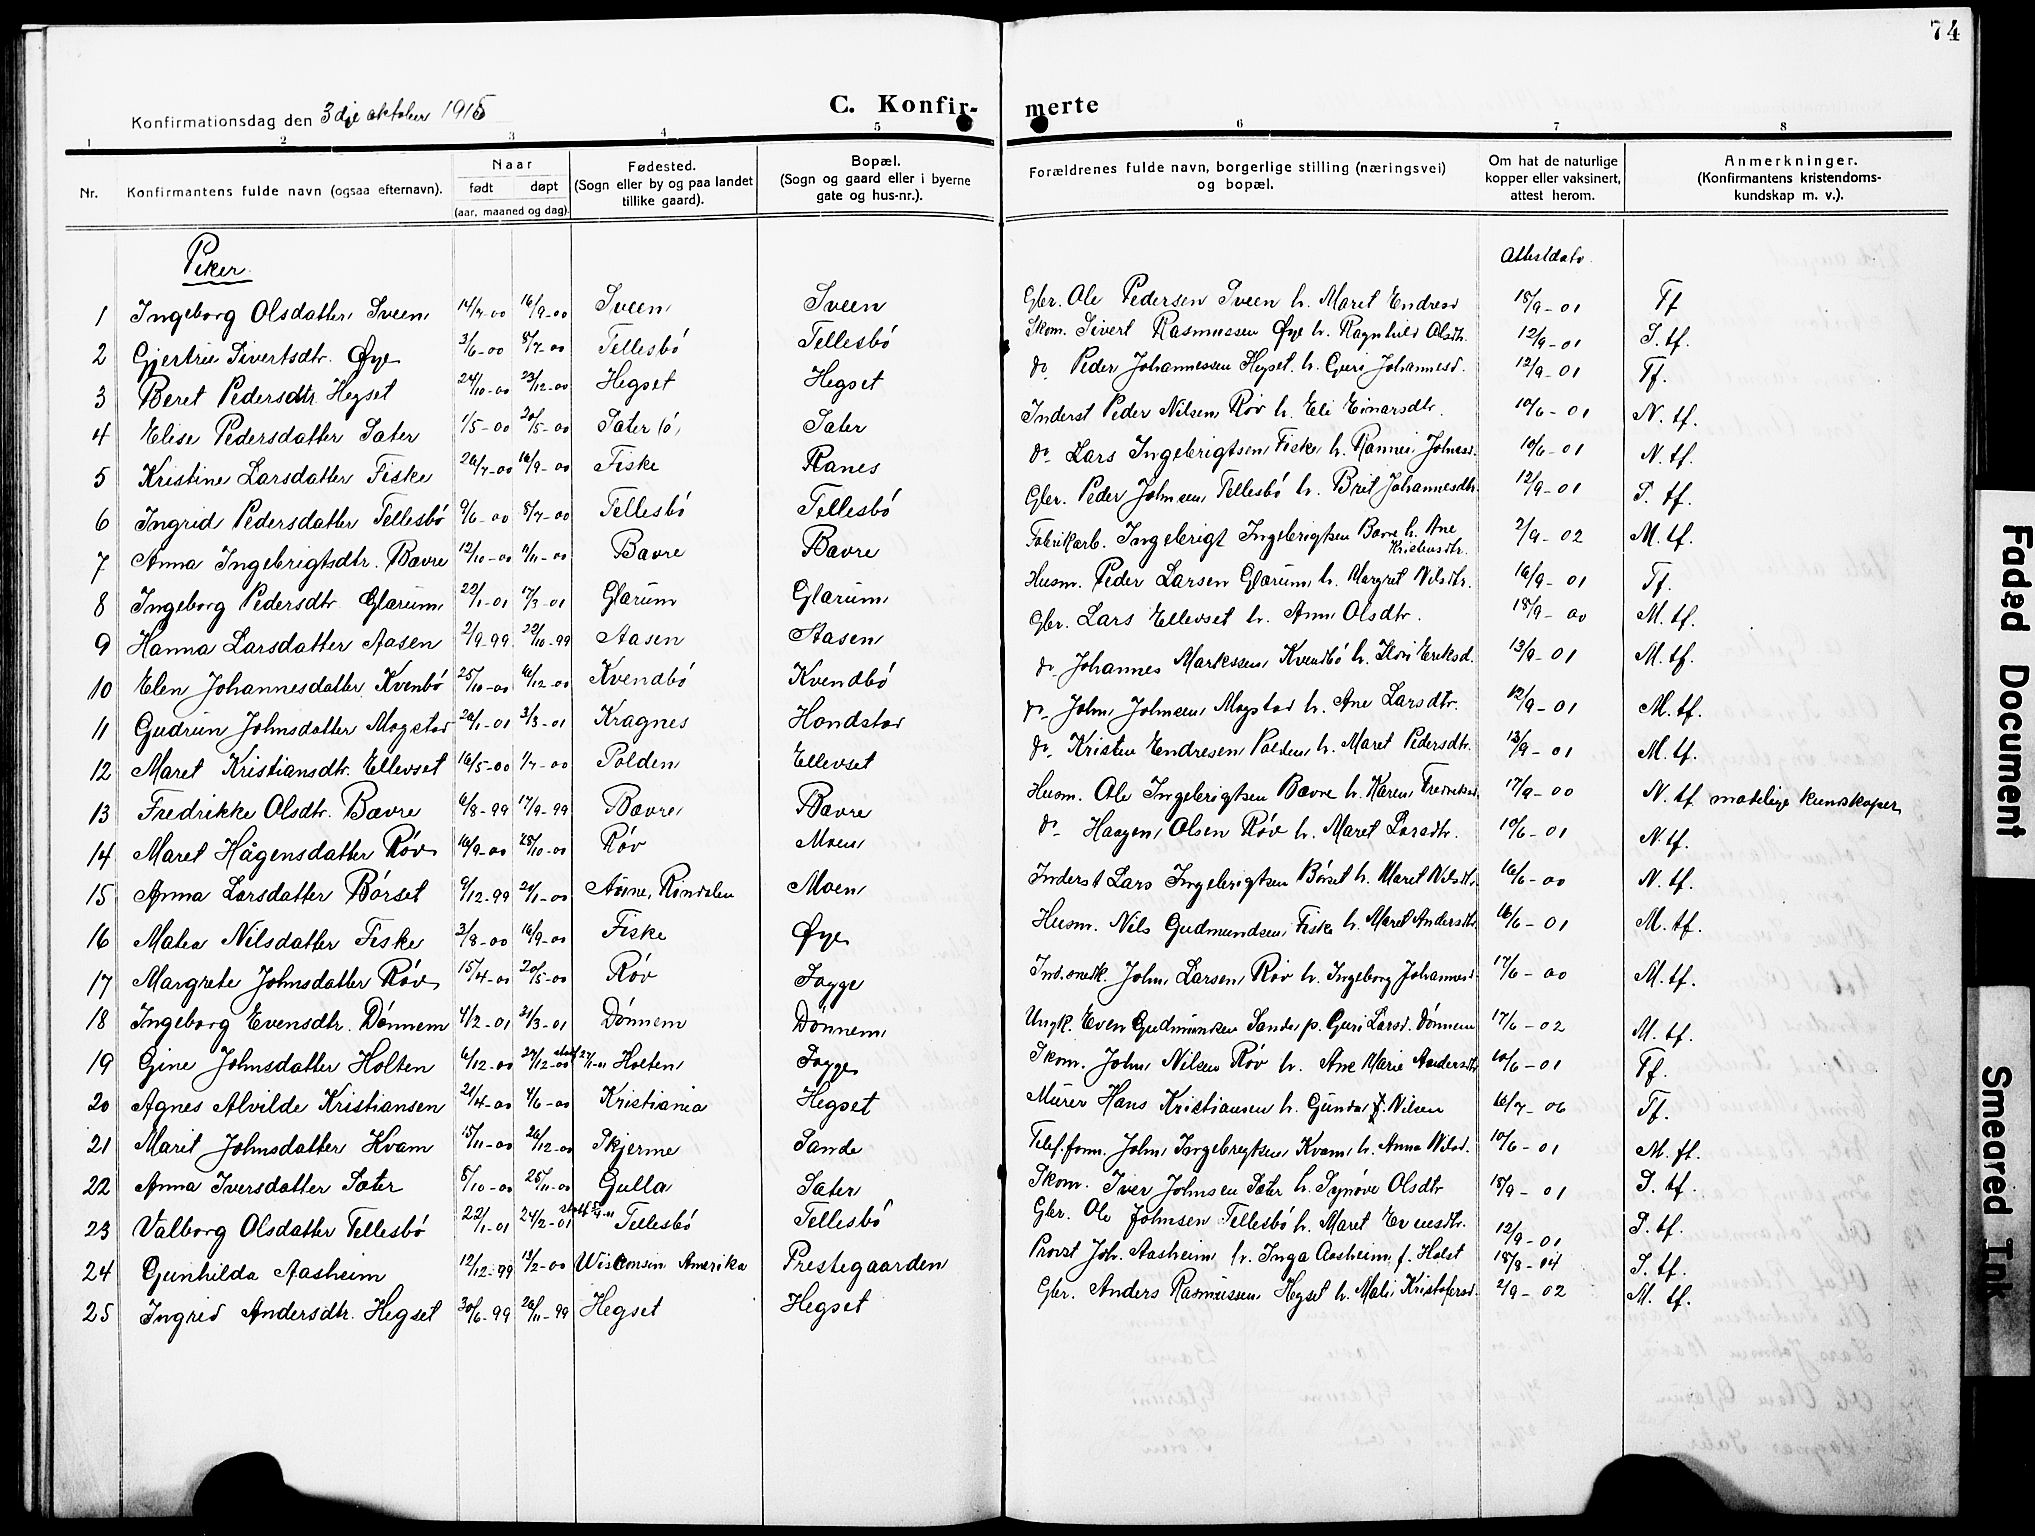 74
Konfirmationsdag den 3dje oktober 1915
C. Konfir- merte
1 2 3 4 5 6 7 8
Nr. Konfirmantens fulde navn (ogsaa efternavn). Naar født døpt (aar, maaned og dag). Fødested. (Sogn eller by og paa landet tillike gaard). Bopæl. (Sogn og gaard eller i byerne gate og hus-nr.). Forældrenes fulde navn, borgerlige stilling (næringsvei) og bopæl. Om hat de naturlige kopper eller vaksinert, attest herom. Anmerkninger. (Konfirmantens kristendoms-kundskap m. v.).
Piker. Attestdato
1 Ingeborg Olsdatter Sveen 14/7-00 16/9-00 Sveen Sveen Gbr. Ole Pedersen Sveen h. Maret Endresd 18/9-01 Tf
2 Gjertru Sivertsdtr. Øye 3/6-00 8/7-00 Tellesbö Tellesbö Skom. Sivert Rasmussen Øye h. Ragnhild Olsdtr. 12/9-01 S. tf.
3 Beret Pedersdtr. Hegset 24/10-00 23/12-00 Hegset Hegset do. Peder Johannessen Hegset h. Guri Johannesd. 12/9-01 Tf.
4 Elise Pedersdatter Sæter 1/5-00 20/5-00 Sæter Sæter Inderst Peder Nilsen Röv h. Eli Einarsdtr. 10/6-01 N. tf.
5 Kristine Larsdatter Fiske 26/7-00 16/9-00 Fiske Ranes do. Lars Ingebrigtsen Fiske h. Rannei Johnsd. 10/6-01 N. tf.
6 Ingrid Pedersdatter Tellesbö 9/6-00 8/7-00 Tellesbö Tellesbö Gbr. Peder Johnsen Tellesbö h. Brit Johannesdtr. 12/9-01 S. tf.
7 Anna Ingebrigtsdtr. Bævre 12/10-00 11/11-00 Bævre Bævre Fabrikarb. Ingebrigt Ingebrigtsen Bævre h. Ane Kristensdtr. 2/9-02 M. tf.
8 Ingeborg Pedersdtr. Glærum 22/1-01 17/3-01 Glærum Glærum Husm. Peder Larsen Glærum h. Margret Nilsdtr. 16/9-01 Tf.
9 Hanna Larsdatter Aasen 2/9-99 22/10-99 Aasen Aasen Gbr. Lars Ellevset h. Ann Olsdtr. 18/9-00 M. tf.
10 Elen Johannesdatter Kvenbö 25/10-00 16/12-00 Kvendbö Kvendbö do. Johannes Markssen Kvendbö h. Kari Eriksd. 13/9-01 M. tf.
11 Gudrun Johnsdatter Mogstad 26/1-01 3/3-01 Kragnes Hondstad do. John Johnsen Mogstad h. Ane Larsdtr. 12/9-01 M. tf.
12 Maret Kristiansdtr. Ellevset 16/5-00 1/7-00 Polden Ellevset do. Kristen Endresen Polden h. Maret Pedersdtr. 13/9-01 M. tf.
13 Fredrikke Olsdtr. Bævre 6/8-99 17/9-99 Bævre Bævre Husm. Ole Ingebrigtsen Bævre h. Karen Fredriksd. 17/9-00 N. tf. maatelige kundskaper
14 Maret Hågensdatter Röv 16/9-00 28/10-00 Röv Moen do. Haagen Olsen Röv h. Maret Larsdtr. 10/6-01 N. tf.
15 Anna Larsdatter Börset 9/12-99 21/1-00 Aune, Rindalen Moen Inderst Lars Ingebrigtsen Börset h. Maret Nilsdtr. 16/6-00 N. tf.
16 Matea Nilsdatter Fiske 3/8-00 16/9-00 Fiske Øye Husm. Nils Gudmundsen Fiske h. Maret Andersdtr. 16/6-01 M. tf.
17 Margrete Johnsdatter Röv 15/4-00 20/5-00 Röv Sogge Ind. snedk. John Larsen Röv h. Ingeborg Johannesd. 17/6-00 M. tf.
18 Ingeborg Evensdtr. Dönnem 4/2-01 31/3-01 Dönnem Dönnem Ungk. Even Gudmundsen Sande p. Guri Larsd. Dönnem 17/6-02 M. tf.
19 Gine Johnsdatter Holten 6/12-00 27/12-00 stadf. 27/1-01 Holten Sogge Skom. John Nilsen Röv h. Ane Marie Andersdtr 10/6-01 Tf.
20 Agnes Alvilde Kristiansen 21/4-00 4/6-00 Kristiania Hegset Murer Hans Kristiansen h. Gunda f. Nilsen 16/7-06 Tf.
21 Marit Johnsdatter Kvam 15/11-00 26/12-00 Skjerme Sande Telef.form. John Ingebrigtsen Kvam h. Anna Nilsd. 10/6-01 M. tf.
22 Anna Iversdatter Sæter 8/10-00 25/11-00 Gulla Sæter Skom. Iver Johnsen Sæter h. Synöve Olsdtr 18/9-01 S. tf.
23 Valborg Olsdatter Tellesbö 22/1-01 24/2-01 Tellesbö Tellesbö Gbr. Ole Johnsen Tellesbö h. Maret Evensdtr. 12/9-01 S. tf.
24 Gunhilda Aasheim 12/12-99 13/2-00 Wisconsin Amerika Prestegaarden Provst Joh. Aasheim h. Inga Aasheim f. Holst 18/8-04 S. tf.
25 Ingrid Andersdtr. Hegset 30/6-99 26/11-99 Hegset Hegset Gbr. Anders Rasmussen Hegset h. Mali Kristofersd. 2/9-02 M. tf.
Faded Document
Smeared Ink